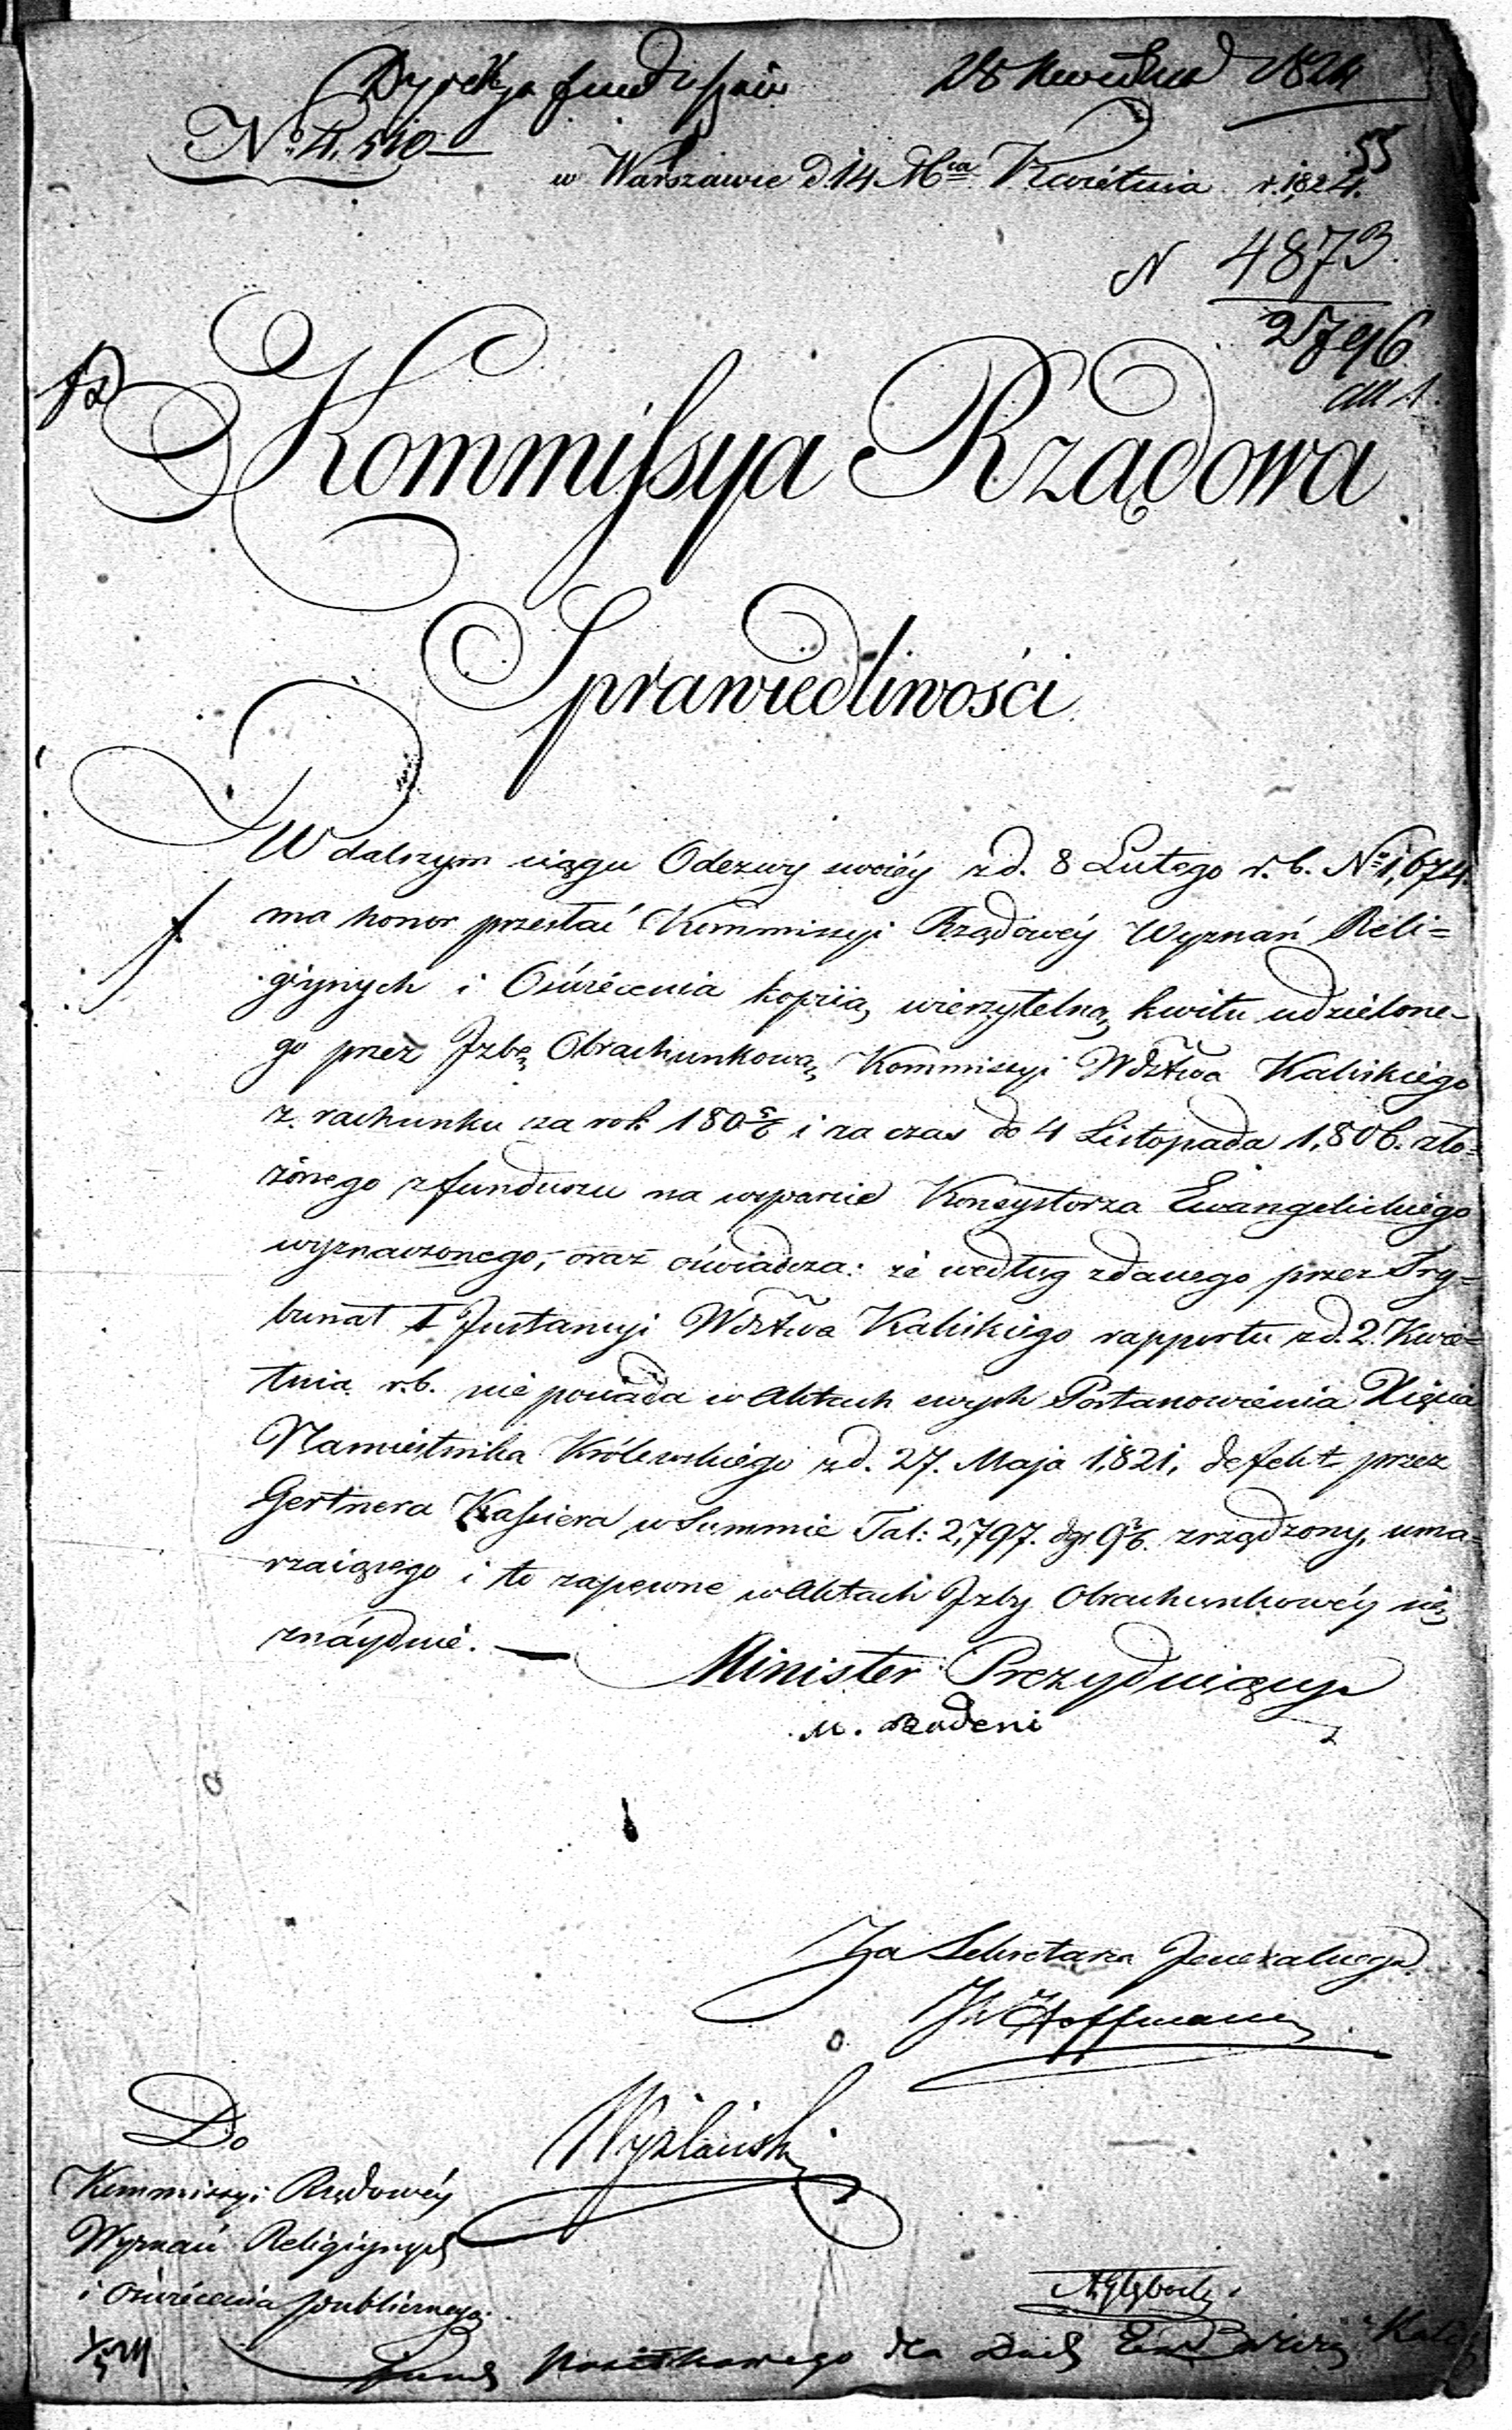 Dyrekcya funduszów 28 Kwietnia 1824
No. 4,510
55
w Warszawie d 14 Mca Kwiétnia r. 1,824.
N 4873
2796
all 1.
Kommissya Rządowa
Sprawiedliwości
W dalszym ciągu Odezwy swoiéy z d. 8 Lutego r. b. No. 1,674.
ma honor przesłać Kommissyi Rządowéy Wyznań Reli=
giynych i Oświécenia kopiią wierzytelną kwitu udzielone-
go przez Izbę Obrachunkową Kommissyi Wdztwa Kaliskiego
z rachunku za rok 180 5/6 i za czas do 4 Listopada 1,806. zło=
żonego z funduszu na wsparcie Konsystorza Ewangelickiego
wyznaczonego; oraz oświadcza: że według zdanego przez Try=
bunał I Instancyi Wdztwa Kaliskiego rapportu z d. 2. Kwié=
tnia r. b. nie posiada w Aktach swych Postanowienia Xięcia
Namiestnika Królewskiégo z d. 27. Maja 1,821, defekt przez
Gertnera Kassiera w Summie Tal: 2,797. dgr 9 zrządzony, uma=
rzaiącego i to zapewne w Aktach Izby Obrachunkowéy się
znáydzie.
Minister Prezyduiący
M. Badeni
Za Sekretarza Jeneralnego
Hoffmann
Do
Kommissyi Rządowéy
Wyznań Religiynych
i Oświécenia publicznego.
Fund Posiłkowego dla